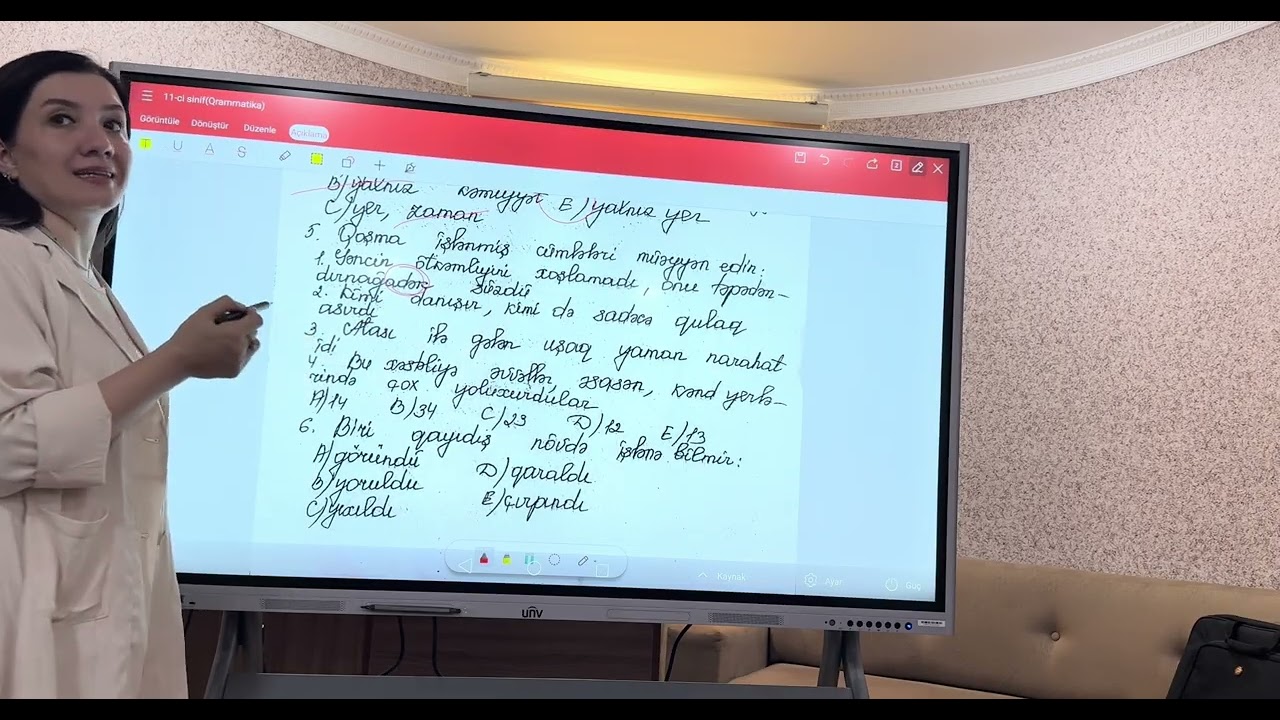 11-ci sinif(Qrammatika)
Görüntüle Dönüştür Düzenle Açıklama
B) yalnız kəmiyyət E) yalnız yer
C) yer, zaman
5. Qoşma işlənmiş cümlələri müəyyən edin:
1. Gəncin ötkəmliyini xoşlamadı, onu təpədən-
dırnağadək süzdü
2. Kimi danışır, kimi də sadəcə qulaq
asırdı
3. Atası ilə gələn uşaq yaman narahat
idi
4. Bu xəstəliyə əvvəllər, əsasən, kənd yerlə-
rində çox yoluxurdular
A) 14 B) 34 C) 23 D) 12 E) 13
6. Biri qayıdış növdə işlənə bilmir:
A) göründü D) qaraldı
B) yoruldu E) çırpındı
C) yıxıldı
Kaynak Ayar Güç
unv